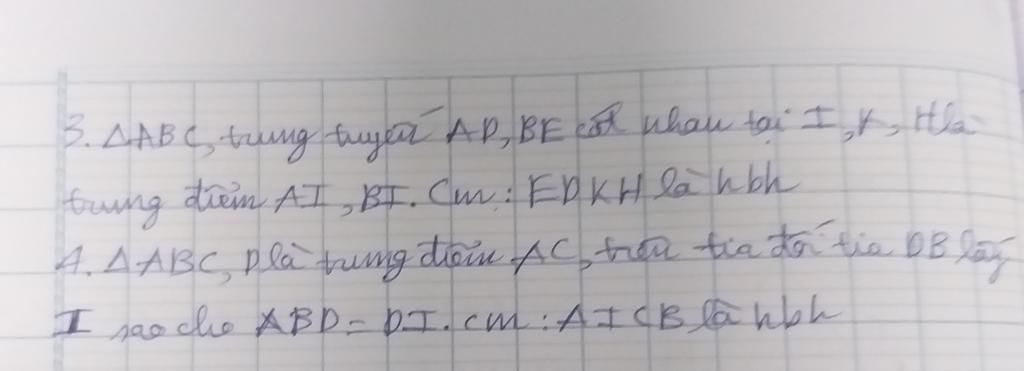 3. △ABC, trung tuyến AD, BE cắt nhau tại I, K, H là
trung điểm AI, BI. Cm: EDKH là hbh
4. △ABC, D là trung điểm AC, trên tia đối tia DB lấy
I sao cho ABD = DI. cm: AICB là hbh